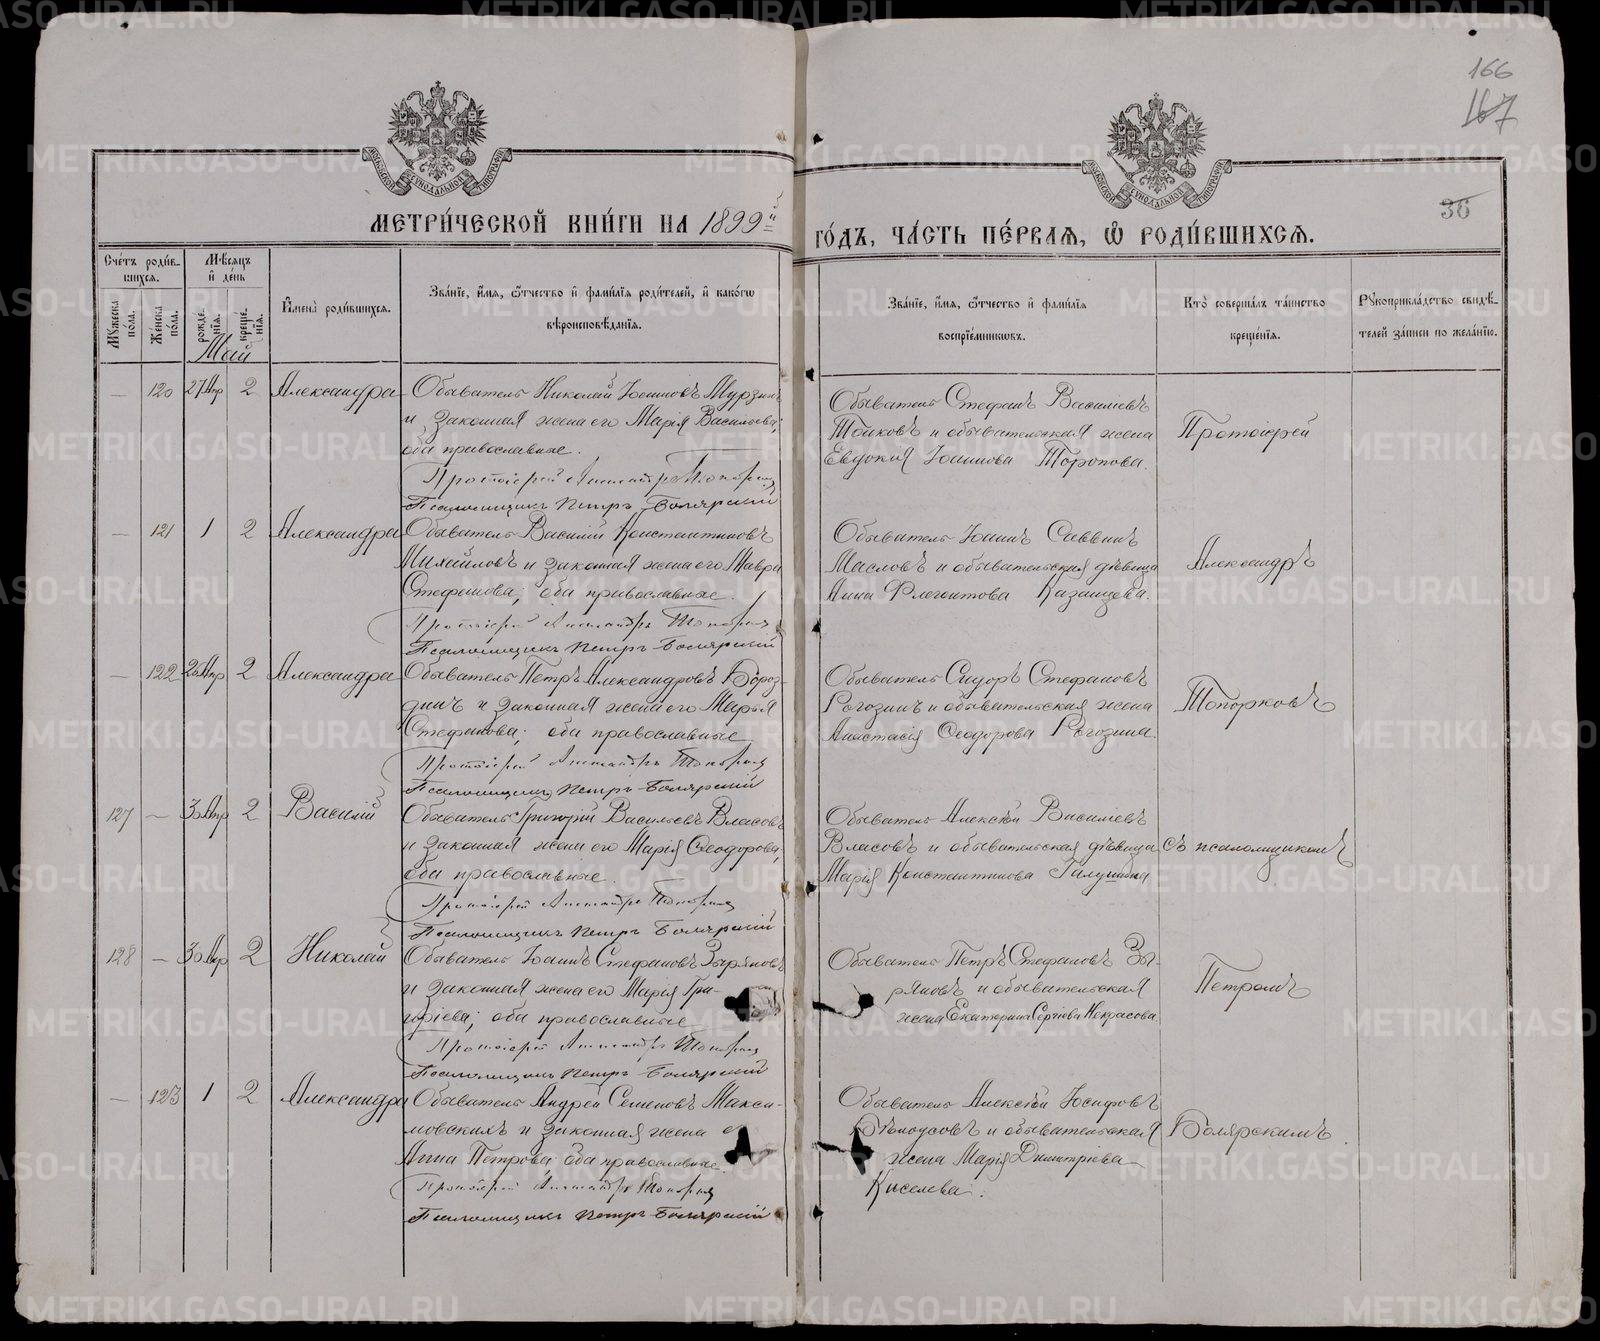 166
167
36
МОСКОВСКОЙ СѴНОДАЛЬНОЙ ТИПОГРАФІИ
МОСКОВСКОЙ СѴНОДАЛЬНОЙ ТИПОГРАФІИ
МЕТРИ́ЧЕСКОЙ КНИ́ГИ НА 1899й
ГО́ДЪ, ЧА́СТЬ ПЕ́РВАѦ, Ѡ҆ РОДИ́ВШИХСѦ.
Сче́тъ роди́вшихсѧ.
Мꙋ́жеска по́ла.
Же́нска по́ла.
Мѣ́сѧцъ и҆ де́нь
рожде́нїѧ.
креще́нїѧ.
Май
И҆мена̀ роди́вшихсѧ.
Зва́нїе, и҆́мѧ, ѻ҆́тчество и҆ фами́лїѧ роди́телей, и҆ како́гѡ
вѣроисповѣ́данїѧ.
Зва́нїе, и҆́мѧ, ѻ҆́тчество и҆ фами́лїѧ
воспрїе́мникѡвъ.
Кто̀ соверша́лъ та́инство
креще́нїѧ.
Рꙋкоприкла́дство свидѣ́телей за́писи по жела́нїю.
— 120 27 Апр 2 Александра
Обыватель Николай Іоанновъ Мурзинъ
и законная жена его Марія Васильева;
оба православные.
Протоіерей Александръ Топорковъ
Псаломщикъ Петръ Боярскій
Обыватель Стефанъ Василіевъ
и обывательская жена
Евдокія Іоаннова Торопова.
Протоіерей
— 121 1 2 Александра
Обыватель Василій Константиновъ
Михайловъ и законная жена его Мавра
Стефанова; оба православные.
Протоіерей Александръ Топорковъ
Псаломщикъ Петръ Боярскій
Обыватель Іоаннъ Саввинъ
Масловъ и обывательская дѣвица
Анна Флегонтова Казанцева.
Александръ
— 122 26 Апр 2 Александра
Обыватель Петръ Александровъ Бороз-
динъ и законная жена его Марья
Стефанова; оба православные
Протоіерей Александръ Топорковъ
Псаломщикъ Петръ Боярскій
Обыватель Сидоръ Стефановъ
Рогозинъ и обывательская жена
Анастасія Ѳеодорова Рогозина.
Топорковъ
127 — 30 Апр 2 Василій
Обыватель Григорій Васильевъ Власовъ
и законная жена его Марія Ѳеодорова,
оба православные.
Протоіерей Александръ Топорковъ
Псаломщикъ Петръ Боярскій
Обыватель Алексѣй Василіевъ
Власовъ и обывательская дѣвица
Марія Константинова Галушина
съ псаломщикомъ
128 — 30 Апр 2 Николай
Обыватель Іоаннъ Стефановъ Зыряновъ
и законная жена его Марія Гри-
горіева; оба православные
Протоіерей Александръ Топорковъ
Псаломщикъ Петръ Боярскій
Обыватель Петръ Стефановъ Зы-
ряновъ и обывательская
жена Екатерина Сергіева Некрасова.
Петромъ
— 123 1 2 Александра
Обыватель Андрей Семеновъ Макси-
мовскихъ и законная жена е
Анна Петрова; оба православные.
Протоіерей Александръ Топорковъ
Псаломщикъ Петръ Боярскій
Обыватель Алексѣй Іосифовъ
Бѣлоусовъ и обывательская
жена Марія Димитріева
Киселева.
Боярскимъ.
METRIKI.GASO-URAL.RU